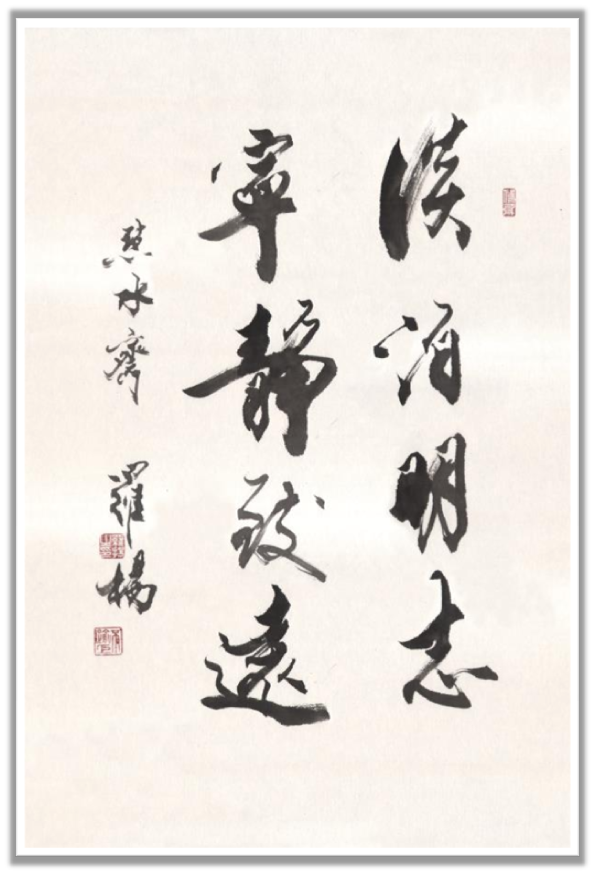 淡泊明志
寧靜致遠
慧水齋 羅楊